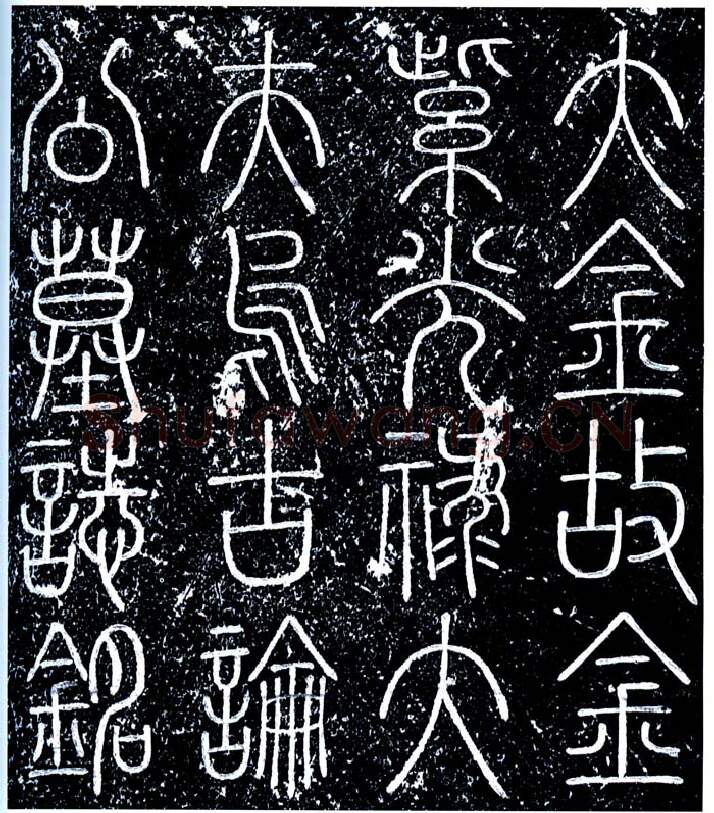 大金故金
紫光祿大
夫烏古論
公墓誌銘
shufawang.CN